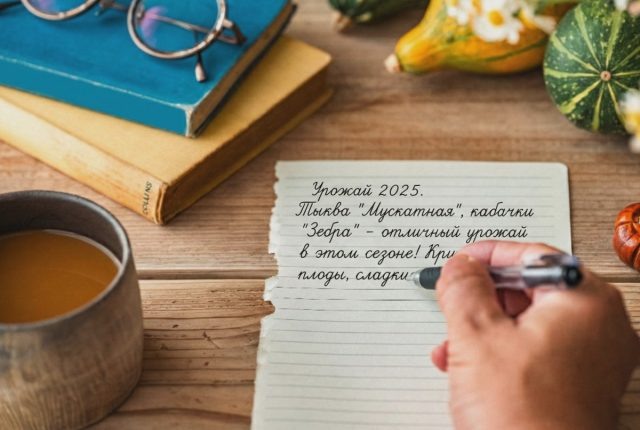 Урожай 2025.
Тыква "Мускатная", кабачки
"Зебра" - отличный урожай
в этом сезоне!
плоды,
COLLINS